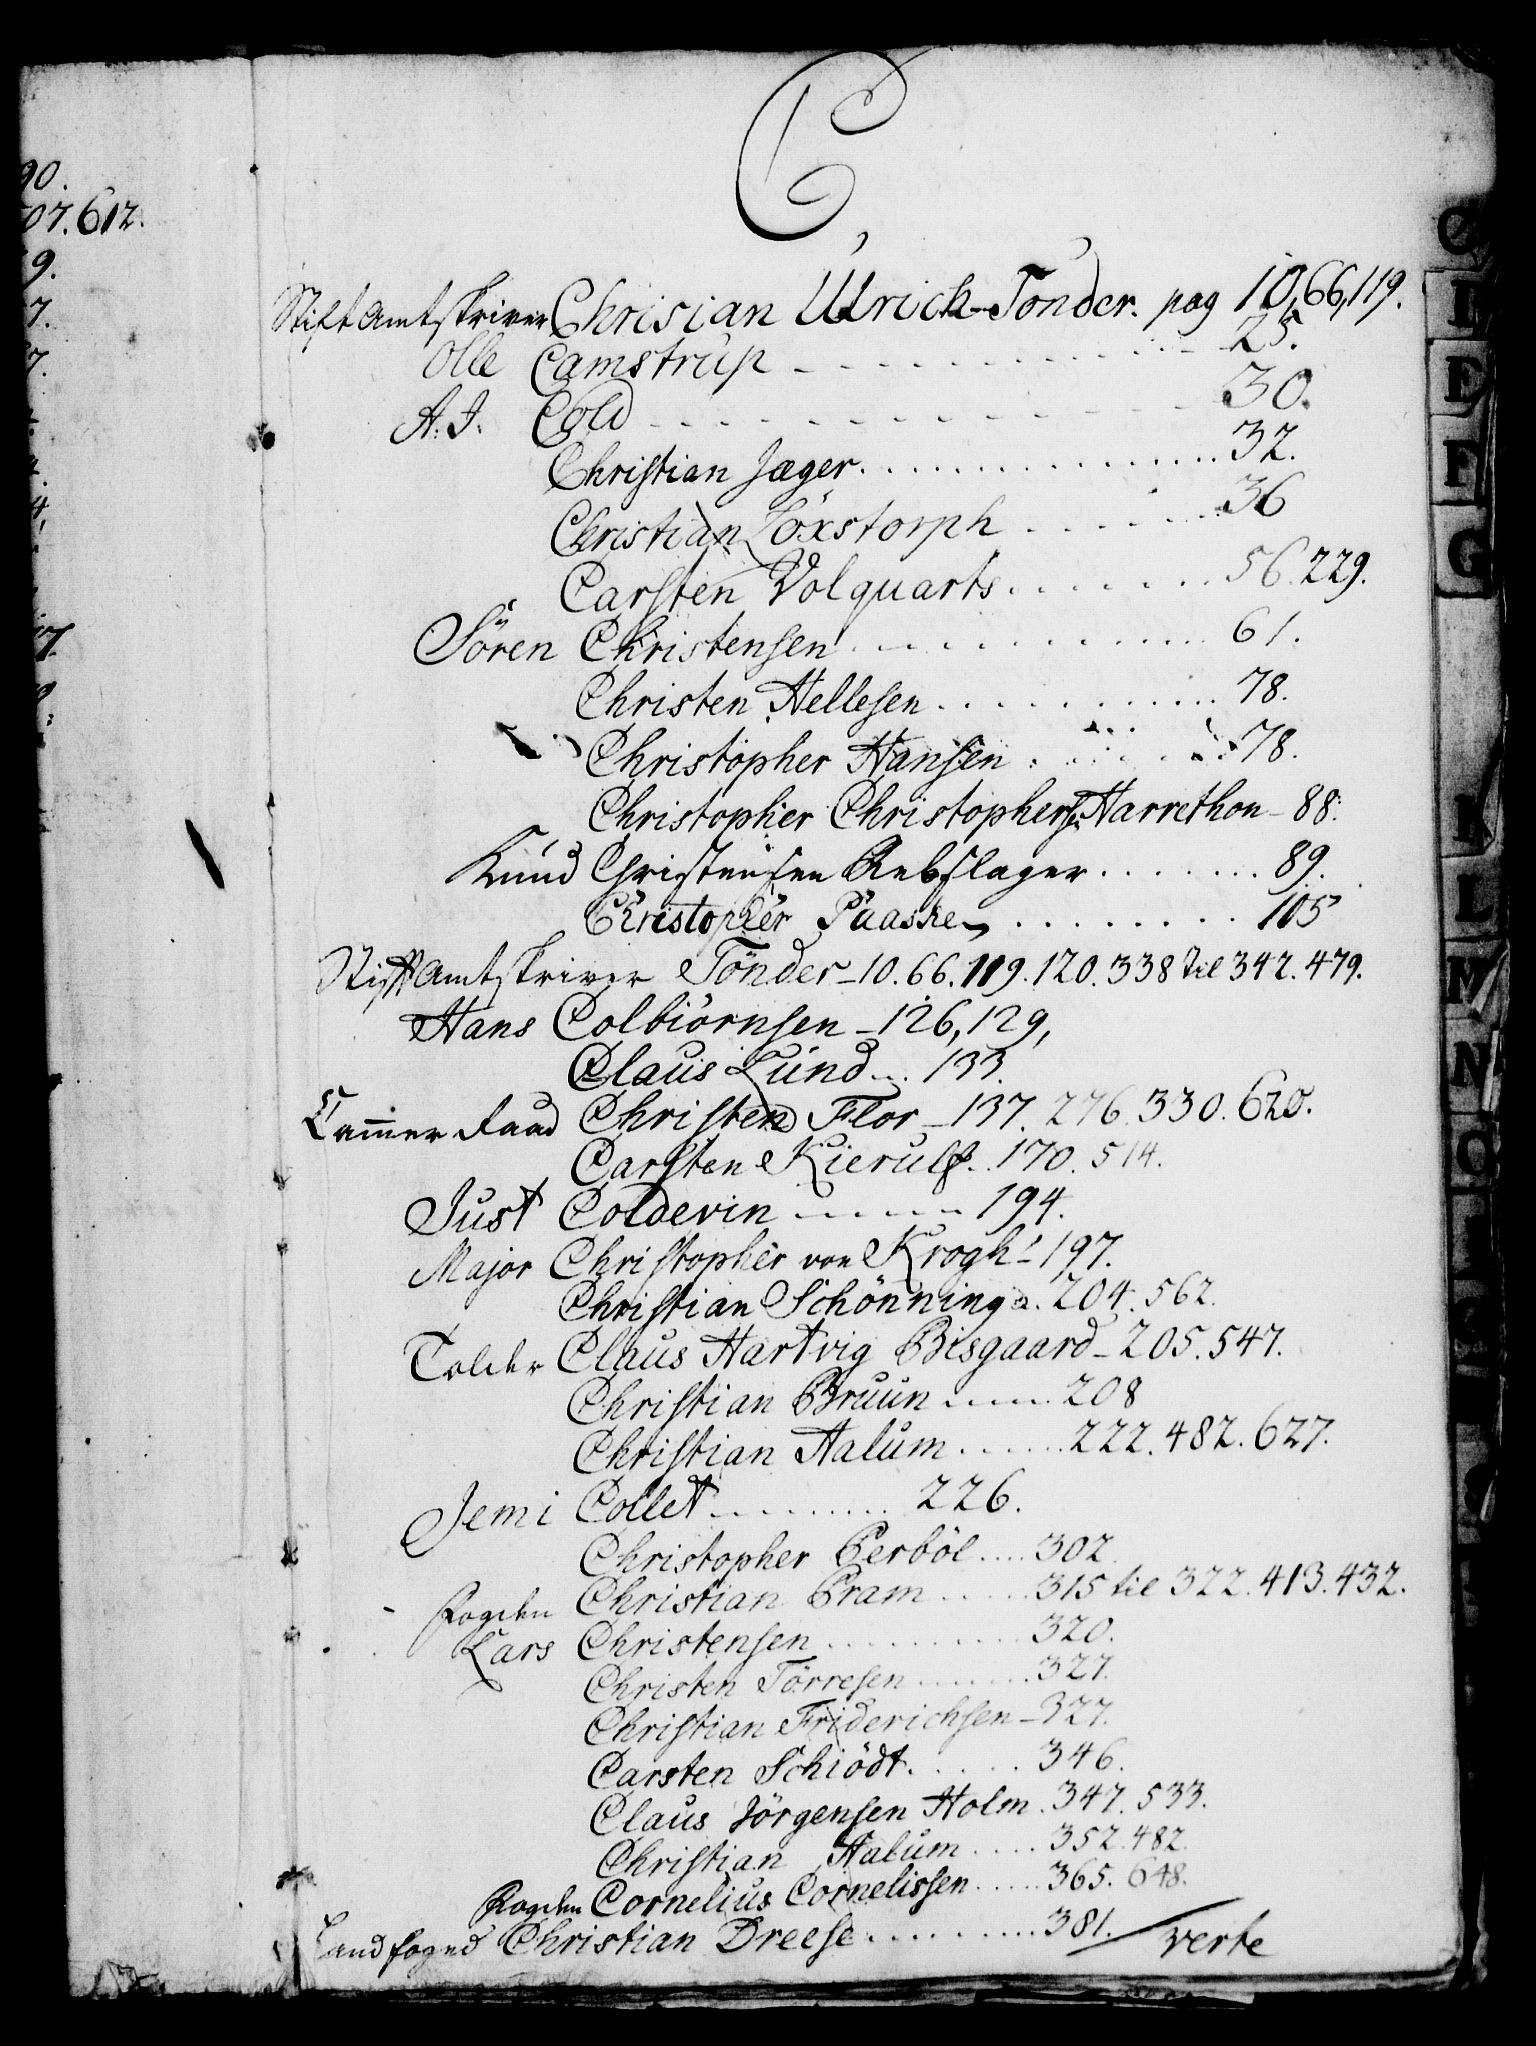 90.
07.612.
9.
7.
7.
4.
17.
C,
StiftAmtskriver Chrisian Ulrich Tonder. pag 10,66,119.
Olle Camstrup - - - - 25.
A. I. Cold - - - - 30.
Christian Jæger. . . . . 32.
Christian Röxstorph . . . . 36
Carsten Volquarts . . . . 56. 229.
Sören Christensen . . . . 61.
Christen Hellesen . . . . 78.
Christopher Hansen . . . . 78.
Christopher Christophers: Harrethon - 88.
Knud Christensen Rebslager . . . . 89.
Christopher Paaske . . . . 105
StiftAmtskriver Tönder - 10. 66. 119. 120. 338 til 342. 479.
Hans Colbiörnsen - 126, 129,
Claus Lund . . . 133.
Cammer Raad Christen Flor - 137. 276. 330. 620.
Carsten Kierulf . . 170. 514.
Just Coldevin - - - - 194.
Major Christopher von Krogh - 197.
Christian Schönning . . 204. 562.
Tolder Claus Hartvig Bisgaard - 205. 547.
Christian Bruun . . . . 208
Christian Aalum . . . . 222. 482. 627.
Jemi Collet . . . . 226.
Christopher Perböl . . . . 302.
Fogden Christian Pram . . . . 315 til 322. 413. 432.
Lars Christensen . . . . 320.
Christen Törresen . . . . 327.
Christian Friderichsen - 327.
Carsten Schiödt . . . . 346.
Claus Jörgensen Holm . 347. 533.
Christian Aalum . . . . 352. 482.
Fogden Cornelius Cornelissen . . . . 365. 648.
Landfoged Christian Dreese . . . . 381. / verte
C
D
E
F
G
K
L
M
N
O